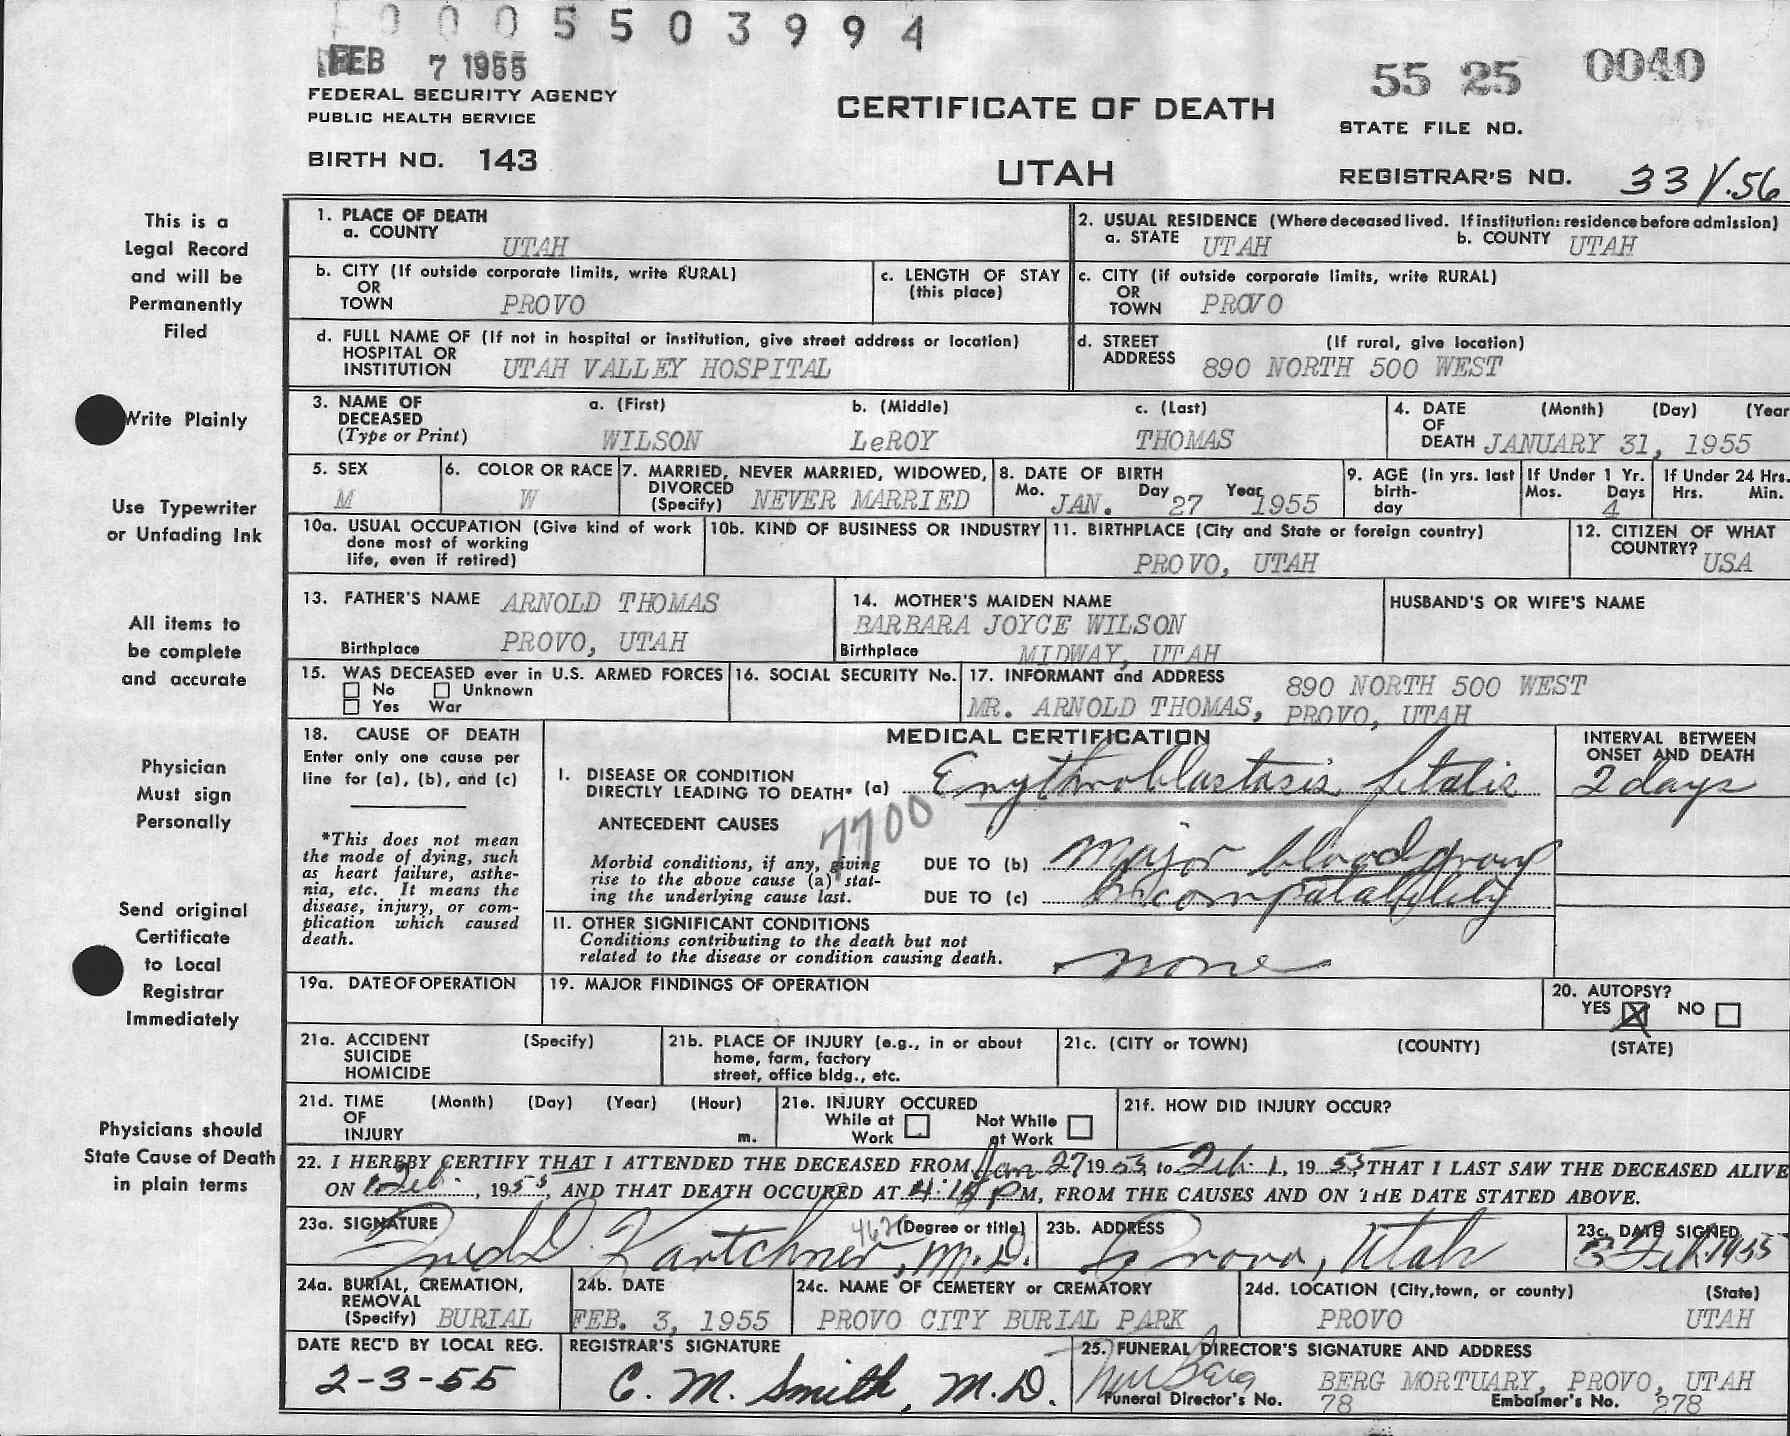 0005503994
FEB 7 1955
55 25 0040
FEDERAL SECURITY AGENCY
PUBLIC HEALTH SERVICE
CERTIFICATE OF DEATH
STATE FILE NO.
BIRTH NO. 143
UTAH
REGISTRAR'S NO. 33 V.56
This is a
Legal Record
and will be
Permanently
Filed
Write Plainly
Use Typewriter
or Unfading Ink
All items to
be complete
and accurate
Physician
Must sign
Personally
Send original
Certificate
to Local
Registrar
Immediately
Physicians should
State Cause of Death
in plain terms
1. PLACE OF DEATH
a. COUNTY UTAH
2. USUAL RESIDENCE (Where deceased lived. If institution: residence before admission)
a. STATE UTAH b. COUNTY UTAH
b. CITY (If outside corporate limits, write RURAL)
OR
TOWN PROVO
c. LENGTH OF STAY
(this place)
c. CITY (if outside corporate limits, write RURAL)
OR
TOWN PROVO
d. FULL NAME OF (If not in hospital or institution, give street address or location)
HOSPITAL OR
INSTITUTION UTAH VALLEY HOSPITAL
d. STREET (If rural, give location)
ADDRESS 890 NORTH 500 WEST
3. NAME OF a. (First) b. (Middle) c. (Last)
DECEASED
(Type or Print) WILSON LeROY THOMAS
4. DATE (Month) (Day) (Year
OF
DEATH JANUARY 31, 1955
5. SEX
M
6. COLOR OR RACE
W
7. MARRIED, NEVER MARRIED, WIDOWED,
DIVORCED
(Specify) NEVER MARRIED
8. DATE OF BIRTH
Mo. Day Year
JAN. 27 1955
9. AGE (in yrs. last
birth-
day
If Under 1 Yr.
Mos. Days
4
If Under 24 Hrs.
Hrs. Min.
10a. USUAL OCCUPATION (Give kind of work
done most of working
life, even if retired)
10b. KIND OF BUSINESS OR INDUSTRY
11. BIRTHPLACE (City and State or foreign country)
PROVO, UTAH
12. CITIZEN OF WHAT
COUNTRY? USA
13. FATHER'S NAME ARNOLD THOMAS
Birthplace PROVO, UTAH
14. MOTHER'S MAIDEN NAME
BARBARA JOYCE WILSON
Birthplace MIDWAY, UTAH
HUSBAND'S OR WIFE'S NAME
15. WAS DECEASED ever in U.S. ARMED FORCES
No Unknown
Yes War
16. SOCIAL SECURITY No.
17. INFORMANT and ADDRESS 890 NORTH 500 WEST
MR. ARNOLD THOMAS, PROVO, UTAH
18. CAUSE OF DEATH
Enter only one cause per
line for (a), (b), and (c)
*This does not mean
the mode of dying, such
as heart failure, asthe-
nia, etc. It means the
disease, injury, or com-
plication which caused
death.
MEDICAL CERTIFICATION
INTERVAL BETWEEN
ONSET AND DEATH
I. DISEASE OR CONDITION
DIRECTLY LEADING TO DEATH* (a) Erythroblastosis fetalis 2 days
ANTECEDENT CAUSES 7700
Morbid conditions, if any, giving
rise to the above cause (a) stat-
ing the underlying cause last.
DUE TO (b) Major blood group
DUE TO (c) Incompatability
II. OTHER SIGNIFICANT CONDITIONS
Conditions contributing to the death but not
related to the disease or condition causing death. none
19a. DATE OF OPERATION
19. MAJOR FINDINGS OF OPERATION
20. AUTOPSY?
YES X NO
21a. ACCIDENT (Specify)
SUICIDE
HOMICIDE
21b. PLACE OF INJURY (e.g., in or about
home, farm, factory
street, office bldg., etc.
21c. (CITY or TOWN) (COUNTY) (STATE)
21d. TIME (Month) (Day) (Year) (Hour)
OF
INJURY m.
21e. INJURY OCCURED
While at Work
Not While at Work
21f. HOW DID INJURY OCCUR?
22. I HEREBY CERTIFY THAT I ATTENDED THE DECEASED FROM Jan 27 1955, to Feb. 1, 1955, THAT I LAST SAW THE DECEASED ALIVE
ON 1 Feb., 1955, AND THAT DEATH OCCURED AT 4:15 P M, FROM THE CAUSES AND ON THE DATE STATED ABOVE.
23a. SIGNATURE (Degree or title)
Fred D. Kartchner, M.D.
23b. ADDRESS
Provo, Utah
23c. DATE SIGNED
3 Feb. 1955
24a. BURIAL, CREMATION,
REMOVAL
(Specify) BURIAL
24b. DATE
FEB. 3, 1955
24c. NAME OF CEMETERY or CREMATORY
PROVO CITY BURIAL PARK
24d. LOCATION (City, town, or county) (State)
PROVO UTAH
DATE REC'D BY LOCAL REG.
2-3-55
REGISTRAR'S SIGNATURE
C. M. Smith, M.D.
25. FUNERAL DIRECTOR'S SIGNATURE AND ADDRESS
Berg BERG MORTUARY, PROVO, UTAH
Funeral Director's No. 78 Embalmer's No. 278